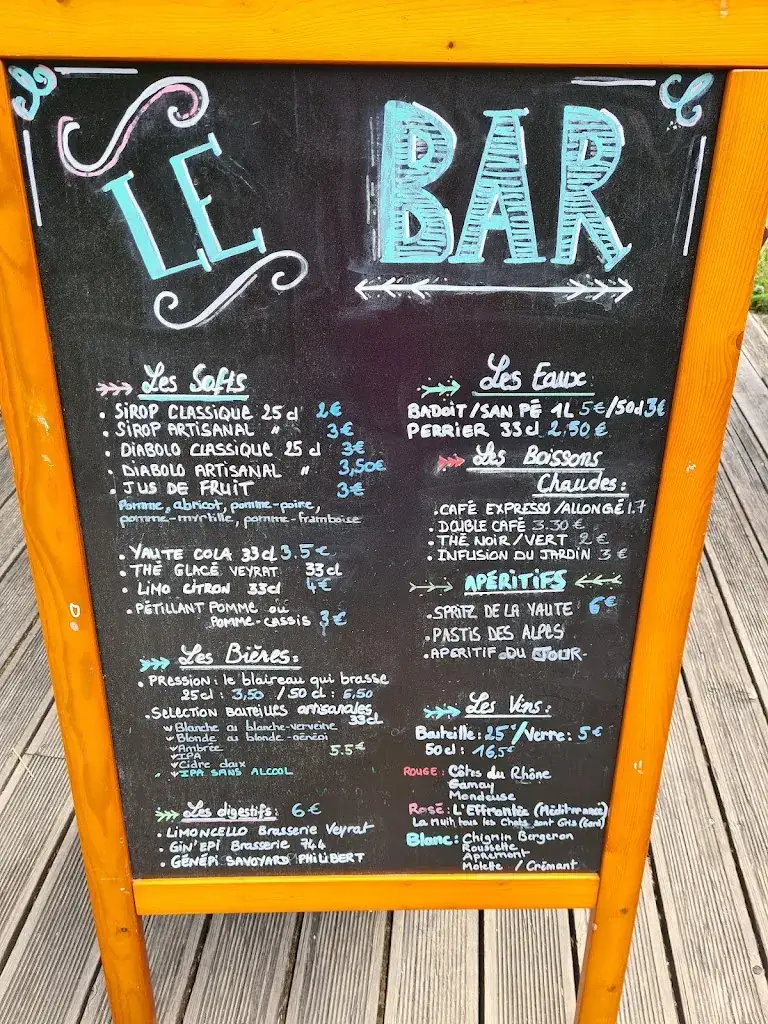 LE BAR
Les Softs
• SIROP CLASSIQUE 25 cl 2€
• SIROP ARTISANAL " 3€
• DIABOLO CLASSIQUE 25 cl 3€
• DIABOLO ARTISANAL " 3,50€
• JUS DE FRUIT 3€
Pomme, abricot, pomme-poire,
pomme-myrtille, pomme-framboise
• YAUTE COLA 33cl 3.5€
• THÉ GLACÉ VEYRAT 33cl
• LIMO CITRON 33cl 4€
• PÉTILLANT POMME ou
POMME-CASSIS 3€
Les Bières:
• PRESSION: le blaireau qui brasse
25cl: 3,50 / 50 cl: 6,50
• SELECTION BOUTEILLES artisanales
33cl
Blanche ou blanche-verveine
Blonde ou blonde-génépi
Ambrée 5.5€
IPA
Cidre doux
IPA SANS ALCOOL
Les digestifs: 6€
• LIMONCELLO Brasserie Veyrat
• GIN'EPI Brasserie 744
• GÉNÉPI SAVOYARD PHILIBERT
Les Eaux
BADOIT/SAN PÉ 1L 5€/50cl 3€
PERRIER 33cl 2.50€
Les Boissons
Chaudes:
• CAFÉ EXPRESSO/ALLONGÉ 1.7
• DOUBLE CAFÉ 3.30€
• THÉ NOIR/VERT 2€
• INFUSION DU JARDIN 3€
APÉRITIFS
• SPRITZ DE LA YAUTE 6€
• PASTIS DES ALPES
• APERITIF DU JOUR
Les Vins:
Bouteille: 25€/Verre: 5€
50cl: 16,5€
ROUGE: Côtes du Rhône
Gamay
Mondeuse
Rosé: L'Effrontée (Méditerranée)
La Nuit tous les Chats sont Gris (Gard)
Blanc: Chignin Bergeron
Roussette
Apremont
Molette / Crémant